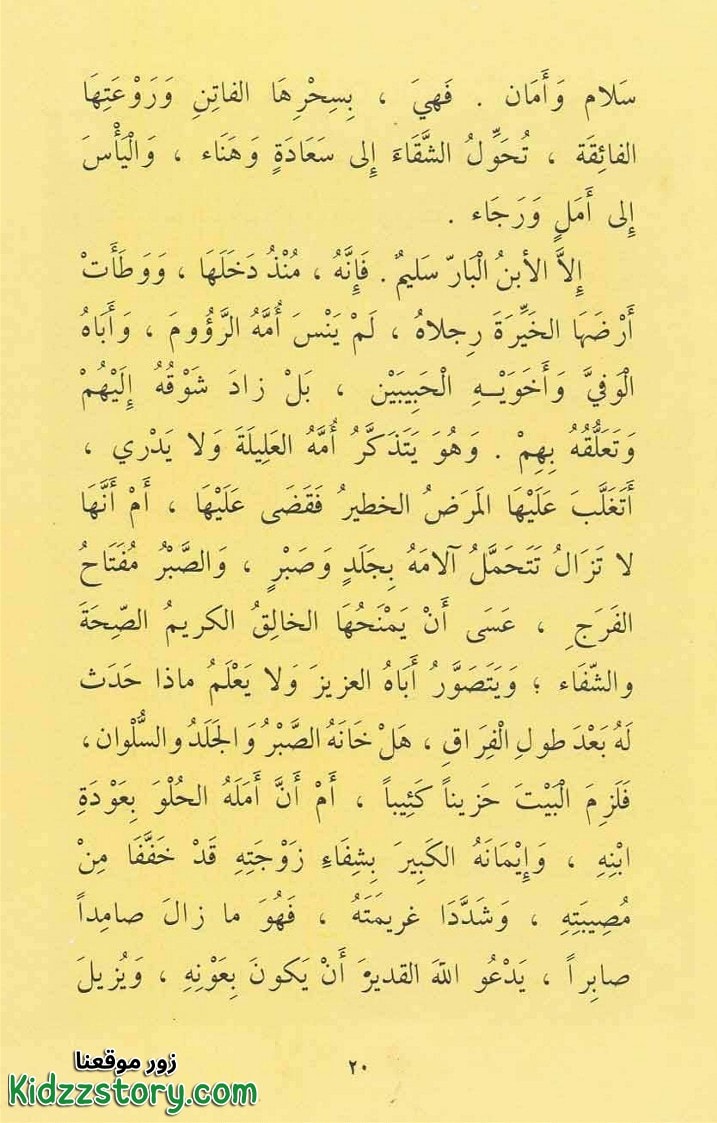 سَلام وَأَمَان . فَهِيَ ، بِسِحْرِهَا الفاتِنِ وَرَوْعَتِهَا
الفائِقَة ، تُحَوِّلُ الشَّقَاءَ إِلى سَعَادَةٍ وَهَنَاء ، وَالْيَأْسَ
إِلى أَمَلٍ وَرَجَاء .
إِلاَّ الأبنُ الْبَارّ سَليمٌ . فَإِنَّهُ ، مُنْذُ دَخَلَهَا ، وَوَطَأَتْ
أَرْضَهَا الخَيِّرَةَ رِجلاهُ ، لَمْ يَنْسَ أُمَّهُ الرَّؤُومَ ، وَأَبَاهُ
الْوَفِيَّ وَأَخَوَيْهِ الْحَبِيبَيْن ، بَلْ زادَ شَوْقُهُ إِلَيْهِمْ
وَتَعَلُّقُهُ بِهِمْ . وَهُوَ يَتَذَكَّرُ أُمَّهُ العَلِيلَةَ وَلا يَدْرِي ،
أَتَغَلَّبَ عَلَيْهَا المَرَضُ الخطيرُ فَقَضَى عَلَيْهَا ، أَمْ أَنَّهَا
لا تَزَالُ تَتَحَمَّلُ آلامَهُ بِجَلَدٍ وَصَبْرٍ ، وَالصَّبْرُ مُفْتَاحُ
الفَرَجِ ، عَسَى أَنْ يَمْنَحُهَا الخالِقُ الكريمُ الصِّحَةَ
والشِّفَاء ؛ وَيَتَصَوَّرُ أَبَاهُ العزيزَ وَلا يَعْلَمُ ماذا حَدَثَ
لَهُ بَعْدَ طولِ الْفِرَاقِ ، هَلْ خَانَهُ الصَّبْرُ وَالجَلَدُ والسُّلْوان،
فَلَزِمَ الْبَيْتَ حَزيناً كَئِيباً ، أَمْ أَنَّ أَمَلَهُ الحُلْوَ بِعَوْدَةِ
ابْنِهِ ، وَإِيْمَانَهُ الكَبِيرَ بِشِفَاءِ زَوْجَتِهِ قَدْ خَفَّفَا مِنْ
مُصِيبَتِهِ ، وَشَدَّدَا غريمَتَهُ ، فَهُوَ ما زالَ صامِداً
صابِراً ، يَدْعُو اللهَ القديرَ أَنْ يَكونَ بِعَوْنِهِ ، وَيُزيلَ
٢٠
زور موقعنا
Kidzzstory.com